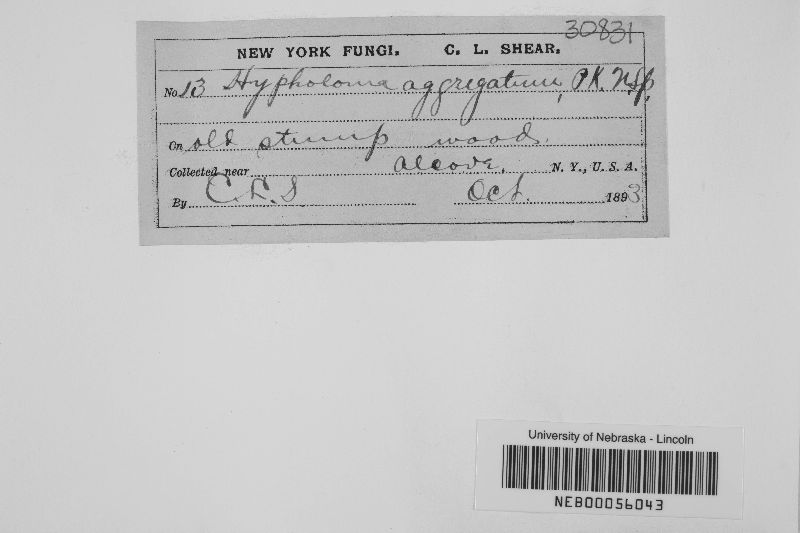 30831
NEW YORK FUNGI. C. L. SHEAR.
No. 13 Hypholoma aggregatum, PK. n.sp.
On old stump woods.
Collected near Alcove, N. Y., U. S. A.
By C. L. S Oct. 1893
University of Nebraska - Lincoln
NEB00056043